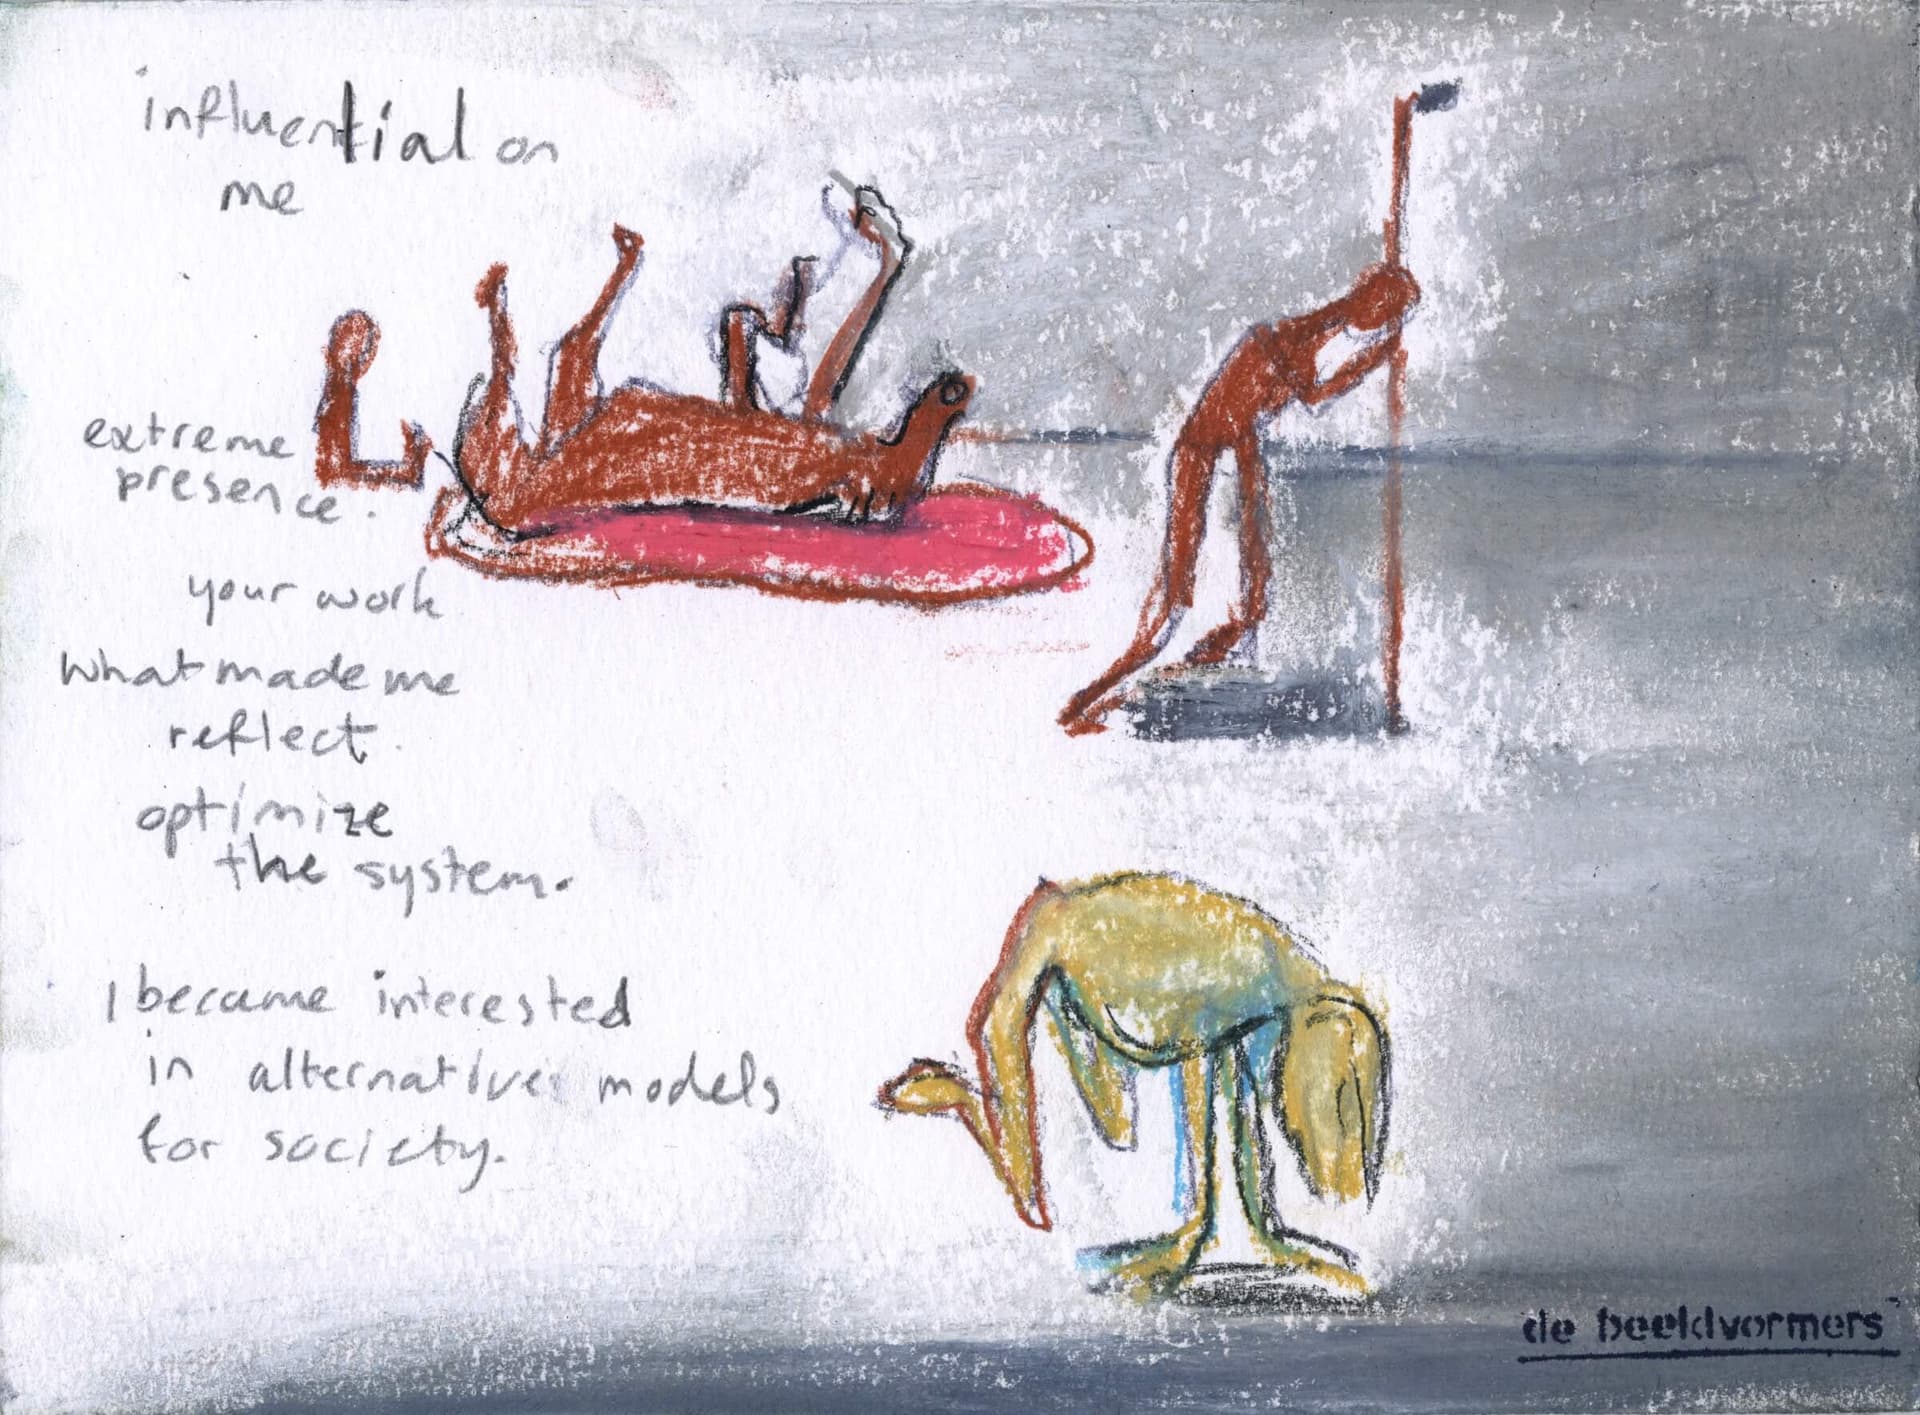 influential on
me
extreme
presence.
your work
what made me
reflect.
optimize
the system.
I became interested
in alternative models
for society.
de beeldvormers